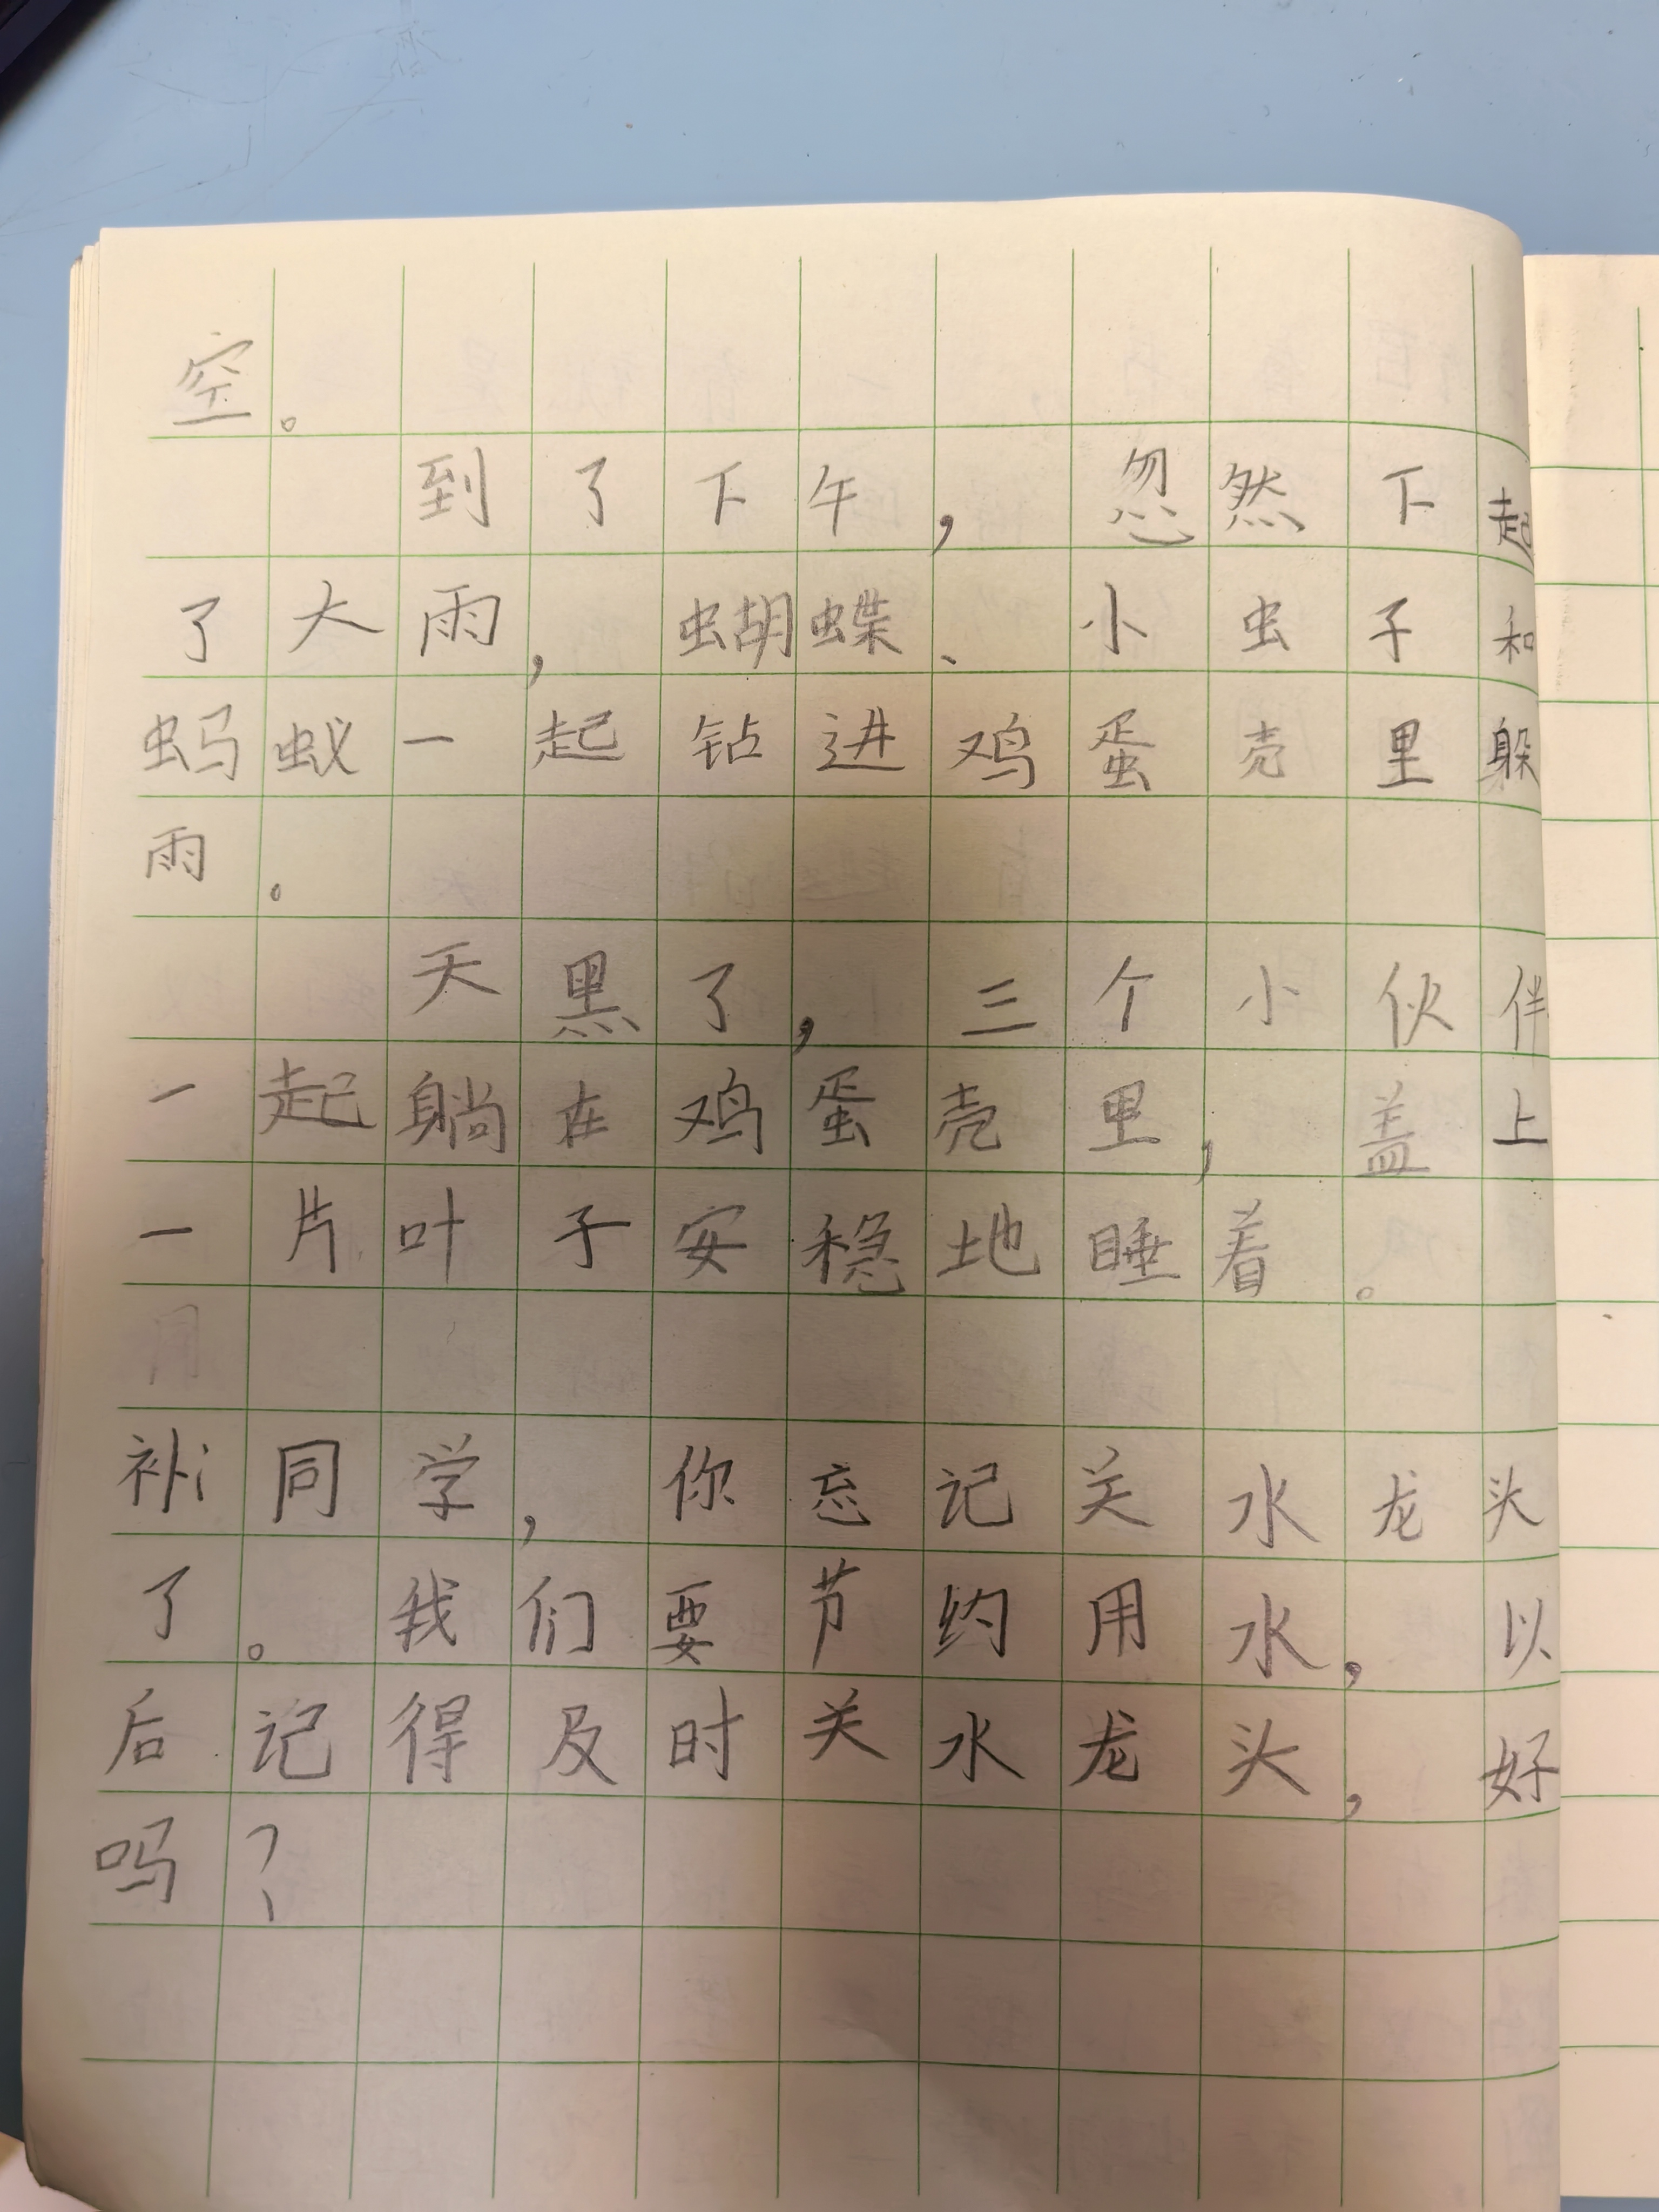 空。
到了下午，忽然下起
了大雨，蝴蝶、小虫子和
蚂蚁一起钻进鸡蛋壳里躲
雨。
天黑了，三个小伙伴
一起躺在鸡蛋壳里，盖上
一片叶子安稳地睡着。
补：同学，你忘记关水龙头
了。我们要节约用水，以
后记得及时关水龙头，好
吗？